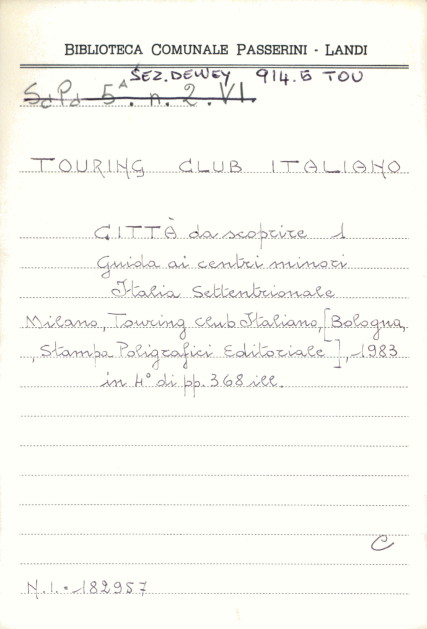 BIBLIOTECA COMUNALE PASSERINI - LANDI
SEZ. DEWEY 914.5 TOU
Sc Pd 5A. n. 2. VI.
TOURING CLUB ITALIANO
CITTÀ da scoprire 1
Guida ai centri minori
Italia Settentrionale
Milano, Touring club Italiano, [Bologna,
, Stampa Poligrafici Editoriale"], 1983
in 4° di pp. 368 ill.
C
N.I. 182957